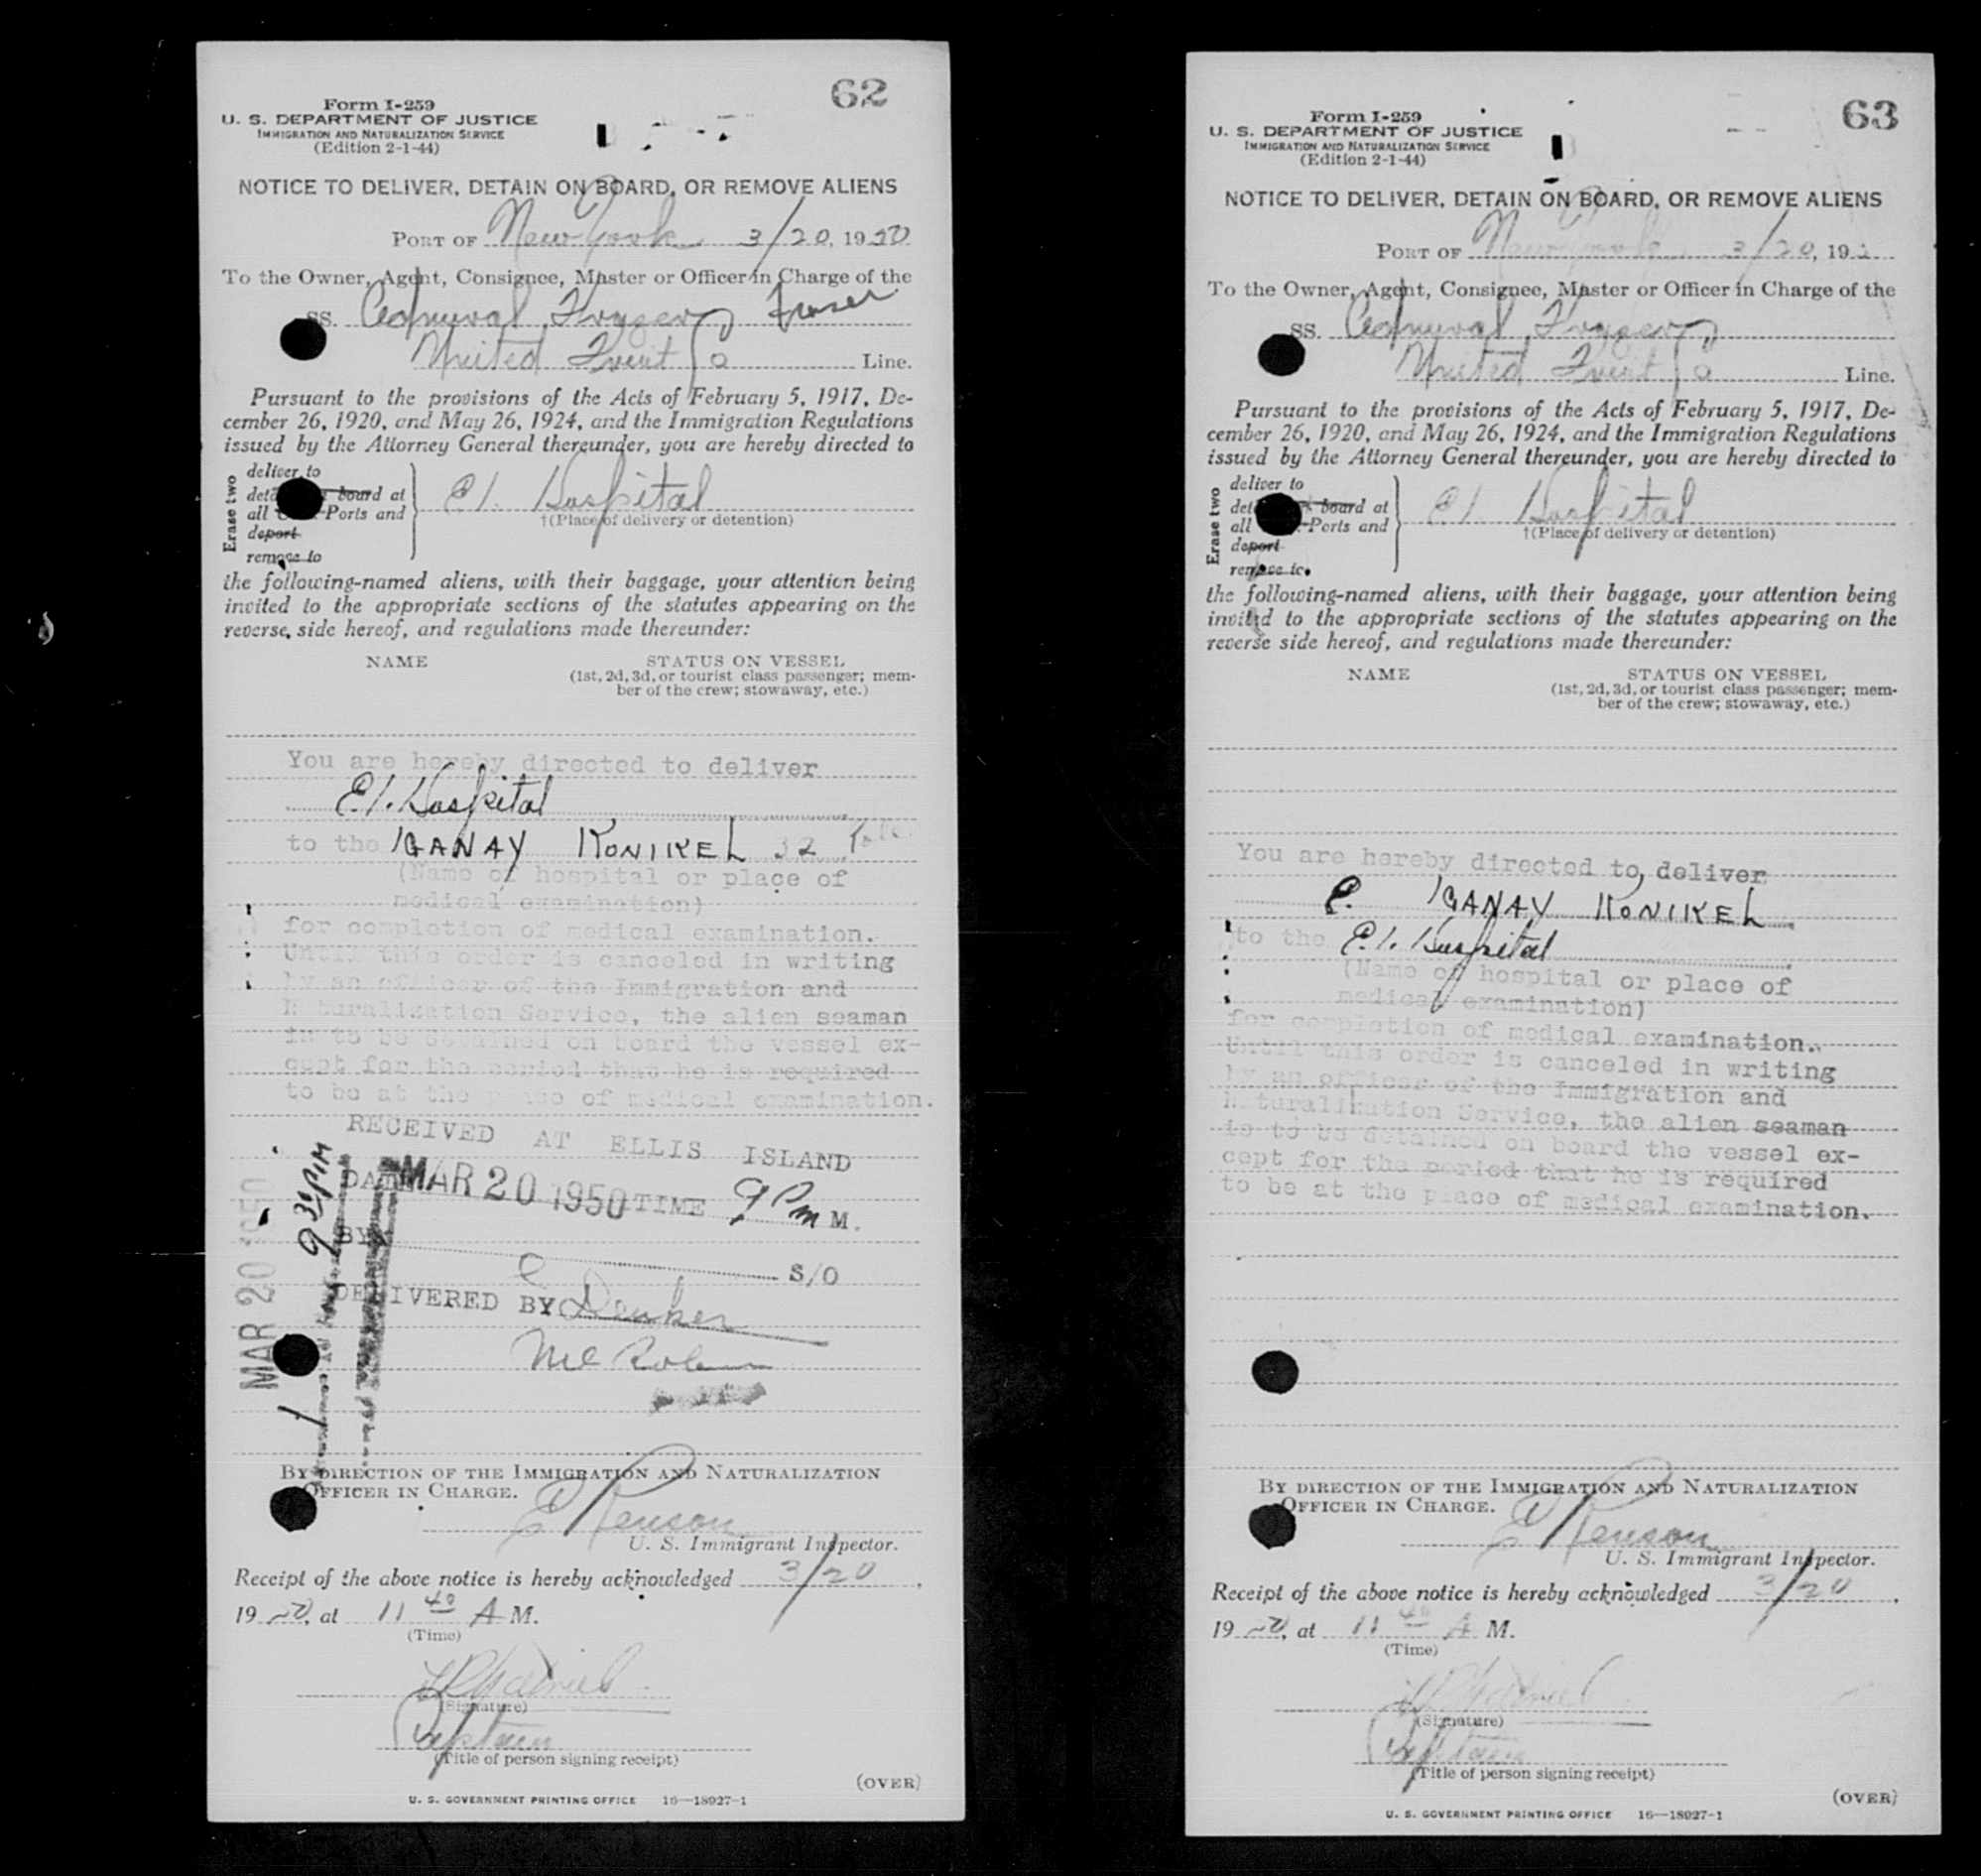 62
Form I-259
U. S. DEPARTMENT OF JUSTICE
IMMIGRATION AND NATURALIZATION SERVICE
(Edition 2-1-44)
NOTICE TO DELIVER, DETAIN ON BOARD, OR REMOVE ALIENS
PORT OF New York 3/20, 1950
To the Owner, Agent, Consignee, Master or Officer in Charge of the
SS. Admiral Frazer Fraser
United Fruit Co Line.
Pursuant to the provisions of the Acts of February 5, 1917, De-
cember 26, 1920, and May 26, 1924, and the Immigration Regulations
issued by the Attorney General thereunder, you are hereby directed to
Erase two
deliver to
board at
all Ports and
deport
remove to
E.I. Hospital
†(Place of delivery or detention)
the following-named aliens, with their baggage, your attention being
invited to the appropriate sections of the statutes appearing on the
reverse side hereof, and regulations made thereunder:
NAME STATUS ON VESSEL
(1st, 2d, 3d, or tourist class passenger; mem-
ber of the crew; stowaway, etc.)
You are hereby directed to deliver
E.I. Hospital
to the IGANAY KONIKEL 32
(Name of hospital or place of
medical examination)
for completion of medical examination.
Until this order is canceled in writing
by an officer of the Immigration and
Naturalization Service, the alien seaman
is to be detained on board the vessel ex-
cept for the period that he is required
to be at the place of medical examination.
RECEIVED AT ELLIS ISLAND
DATE MAR 20 1950 TIME 9 Pm M.
BY S/O
DELIVERED BY Denker
MAR 20 1950
9 30 PM
BY DIRECTION OF THE IMMIGRATION AND NATURALIZATION
OFFICER IN CHARGE.
E Renson
U. S. Immigrant Inspector.
Receipt of the above notice is hereby acknowledged 3/20,
1950, at 11 40 A M.
(Time)
(Signature)
Captain
(Title of person signing receipt)
(OVER)
U. S. GOVERNMENT PRINTING OFFICE 16—18927-1
63
Form I-259
U. S. DEPARTMENT OF JUSTICE
IMMIGRATION AND NATURALIZATION SERVICE
(Edition 2-1-44)
NOTICE TO DELIVER, DETAIN ON BOARD, OR REMOVE ALIENS
PORT OF New York 3/20, 195
To the Owner, Agent, Consignee, Master or Officer in Charge of the
SS. Admiral Frazer
United Fruit Co Line.
Pursuant to the provisions of the Acts of February 5, 1917, De-
cember 26, 1920, and May 26, 1924, and the Immigration Regulations
issued by the Attorney General thereunder, you are hereby directed to
Erase two
deliver to
board at
all Ports and
deport
remove to
E.I. Hospital
†(Place of delivery or detention)
the following-named aliens, with their baggage, your attention being
invited to the appropriate sections of the statutes appearing on the
reverse side hereof, and regulations made thereunder:
NAME STATUS ON VESSEL
(1st, 2d, 3d, or tourist class passenger; mem-
ber of the crew; stowaway, etc.)
You are hereby directed to deliver
IGANAY KONIKEL
to the E.I. Hospital
(Name of hospital or place of
medical examination)
for completion of medical examination.
Until this order is canceled in writing
by an officer of the Immigration and
Naturalization Service, the alien seaman
is to be detained on board the vessel ex-
cept for the period that he is required
to be at the place of medical examination.
BY DIRECTION OF THE IMMIGRATION AND NATURALIZATION
OFFICER IN CHARGE.
E Renson
U. S. Immigrant Inspector.
Receipt of the above notice is hereby acknowledged 3/20,
1950, at 11 40 A M.
(Time)
(Signature)
Captain
(Title of person signing receipt)
(OVER)
U. S. GOVERNMENT PRINTING OFFICE 16—18927-1